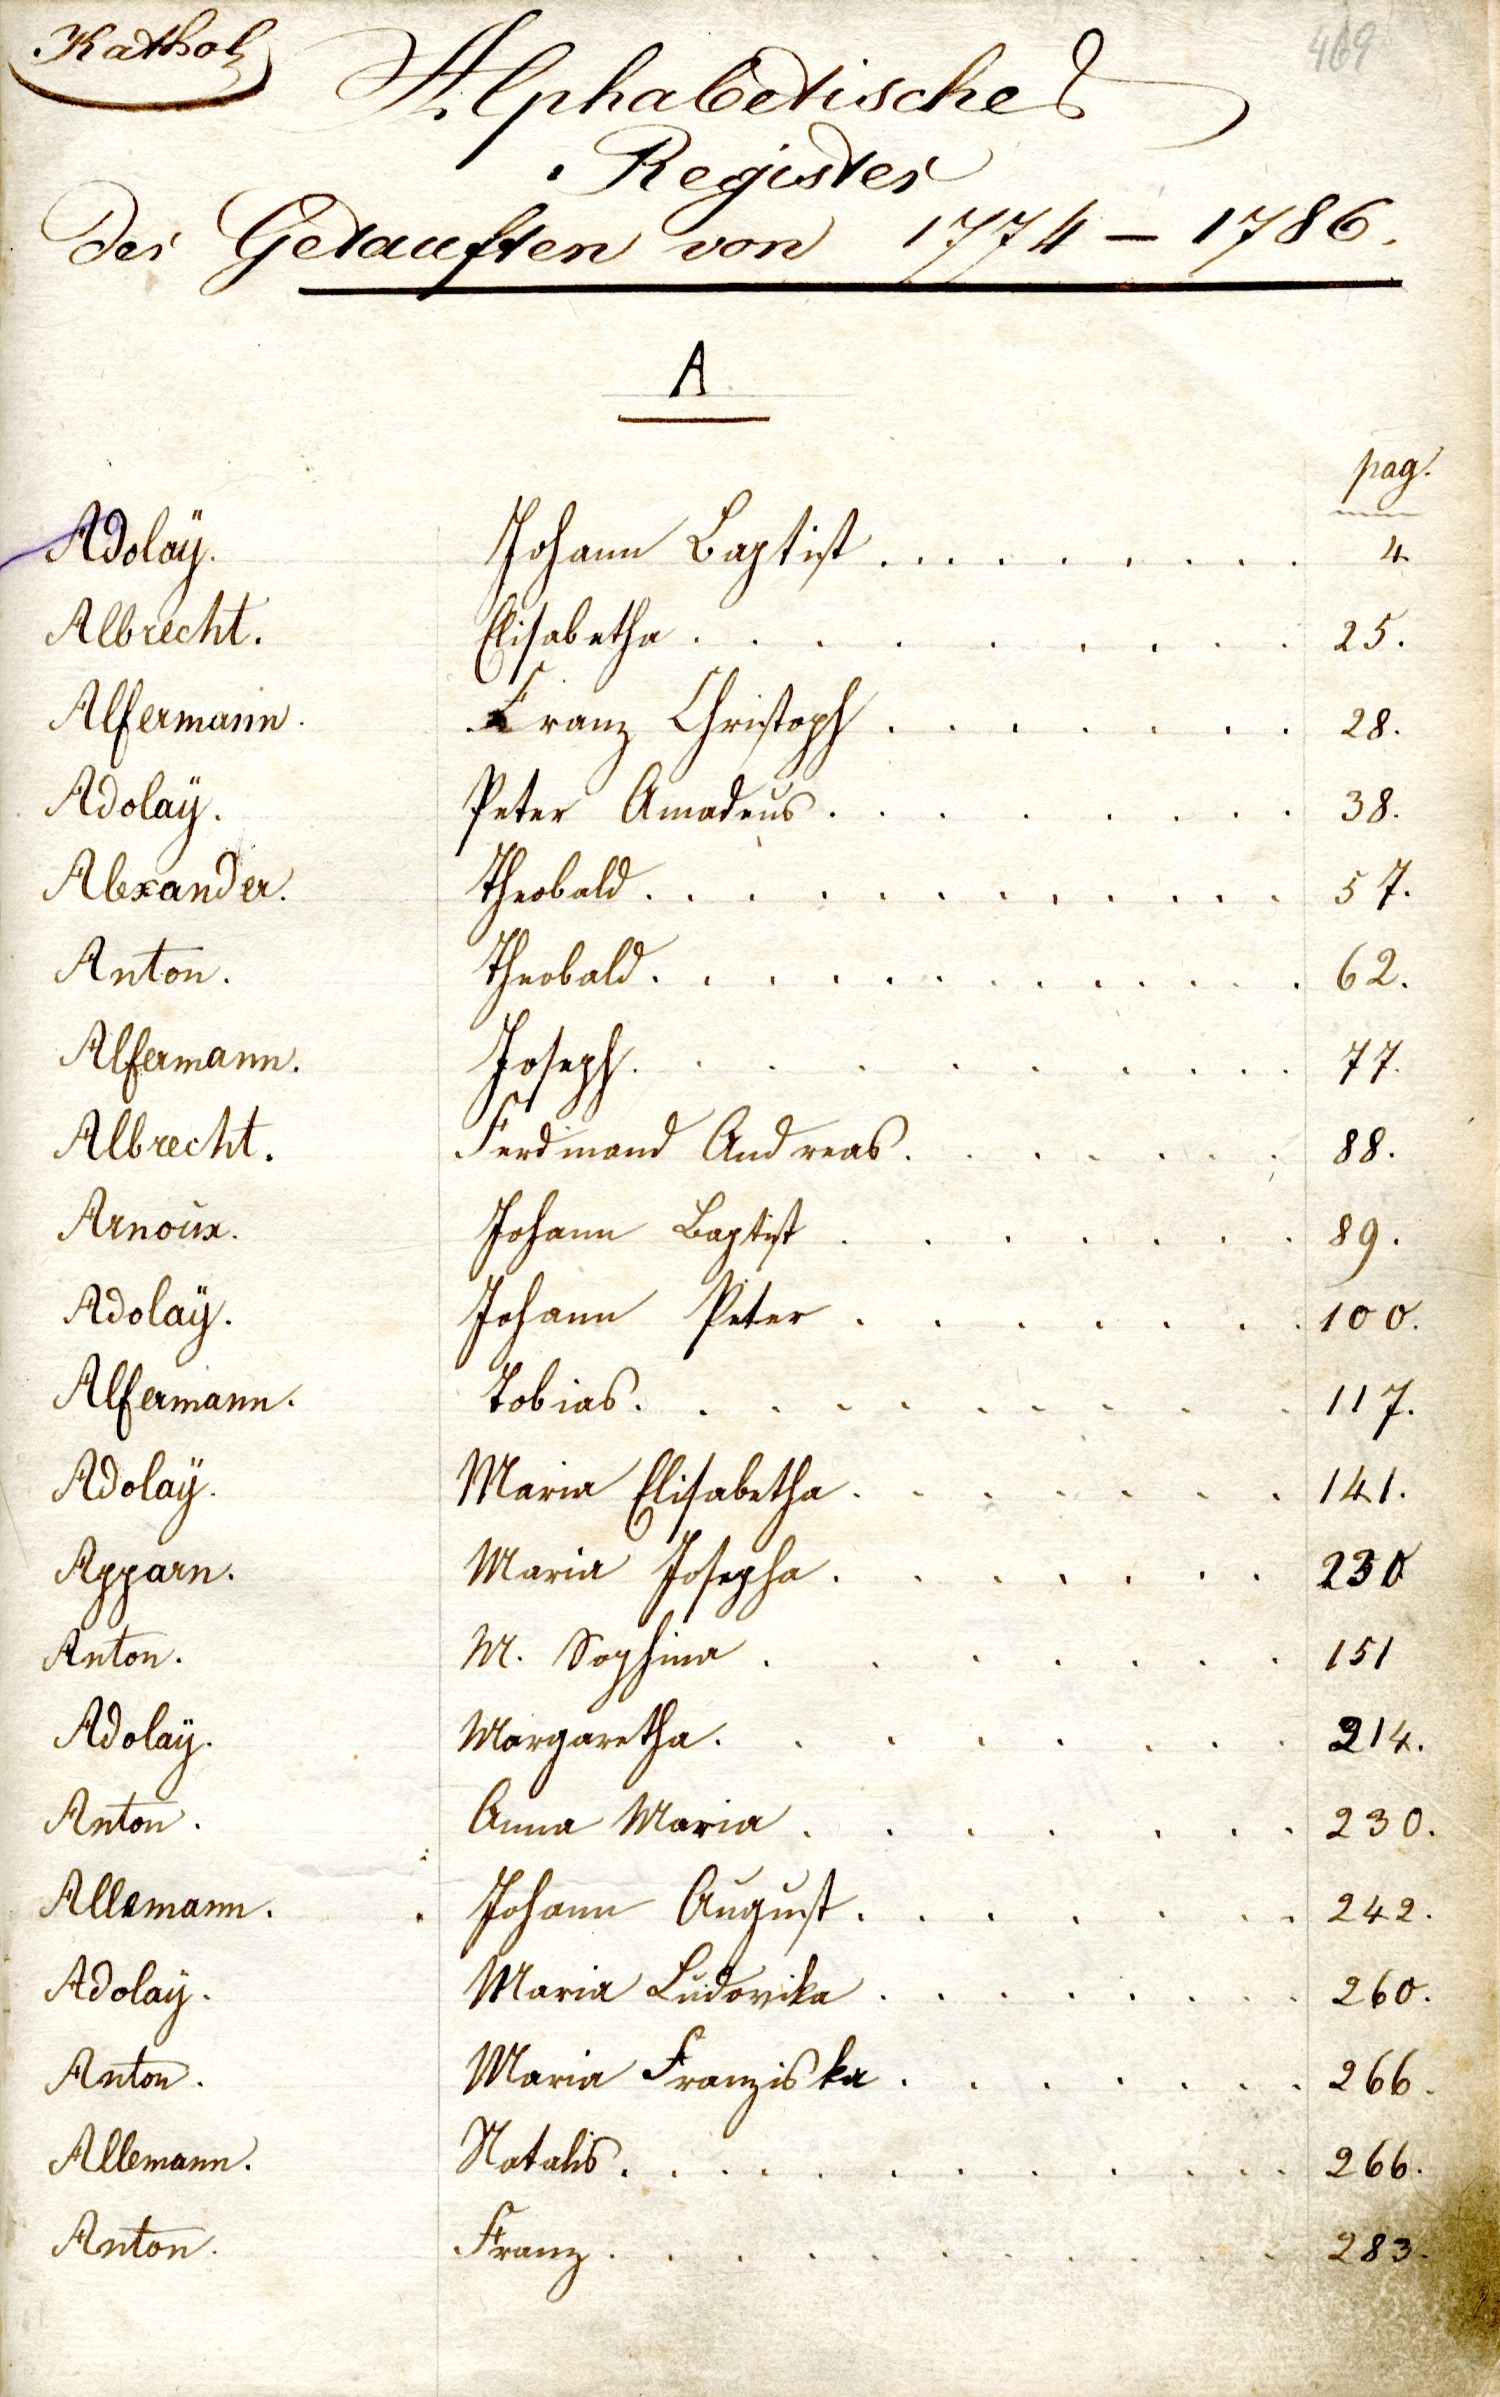 Kathol.
469
Alphabetisches
Register
der Getauften von 1774 – 1786.
A
pag.
Adolaÿ. Johann Baptist . . . . . . . . 4
Albrecht. Elisabetha . . . . . . . . 25.
Alfermann. Franz Christoph . . . . . . . 28.
Adolaÿ. Peter Amadeus . . . . . . . . 38.
Alexander. Theobald . . . . . . . . . . . 57.
Anton. Theobald . . . . . . . . . . . 62.
Alfermann. Joseph . . . . . . . . . 77.
Albrecht. Ferdinand Andreas . . . . . . 88.
Arnoux. Johann Baptist . . . . . . . 89.
Adolaÿ. Johann Peter . . . . . . . 100.
Alfermann. Tobias . . . . . . . . . . 117.
Adolaÿ. Maria Elisabetha . . . . . . . 141.
Apparn. Maria Josepha . . . . . . . 230
Anton. M. Sophina . . . . . . . 151
Adolaÿ. Margaretha . . . . . . . . 214.
Anton. Anna Maria . . . . . . . 230.
Allemann. Johann August . . . . . . . 242.
Adolaÿ. Maria Ludovika . . . . . . . . 260.
Anton. Maria Franziska . . . . . . . 266.
Allemann. Natalis . . . . . . . . . . . 266.
Anton. Franz . . . . . . . . . . . 283.